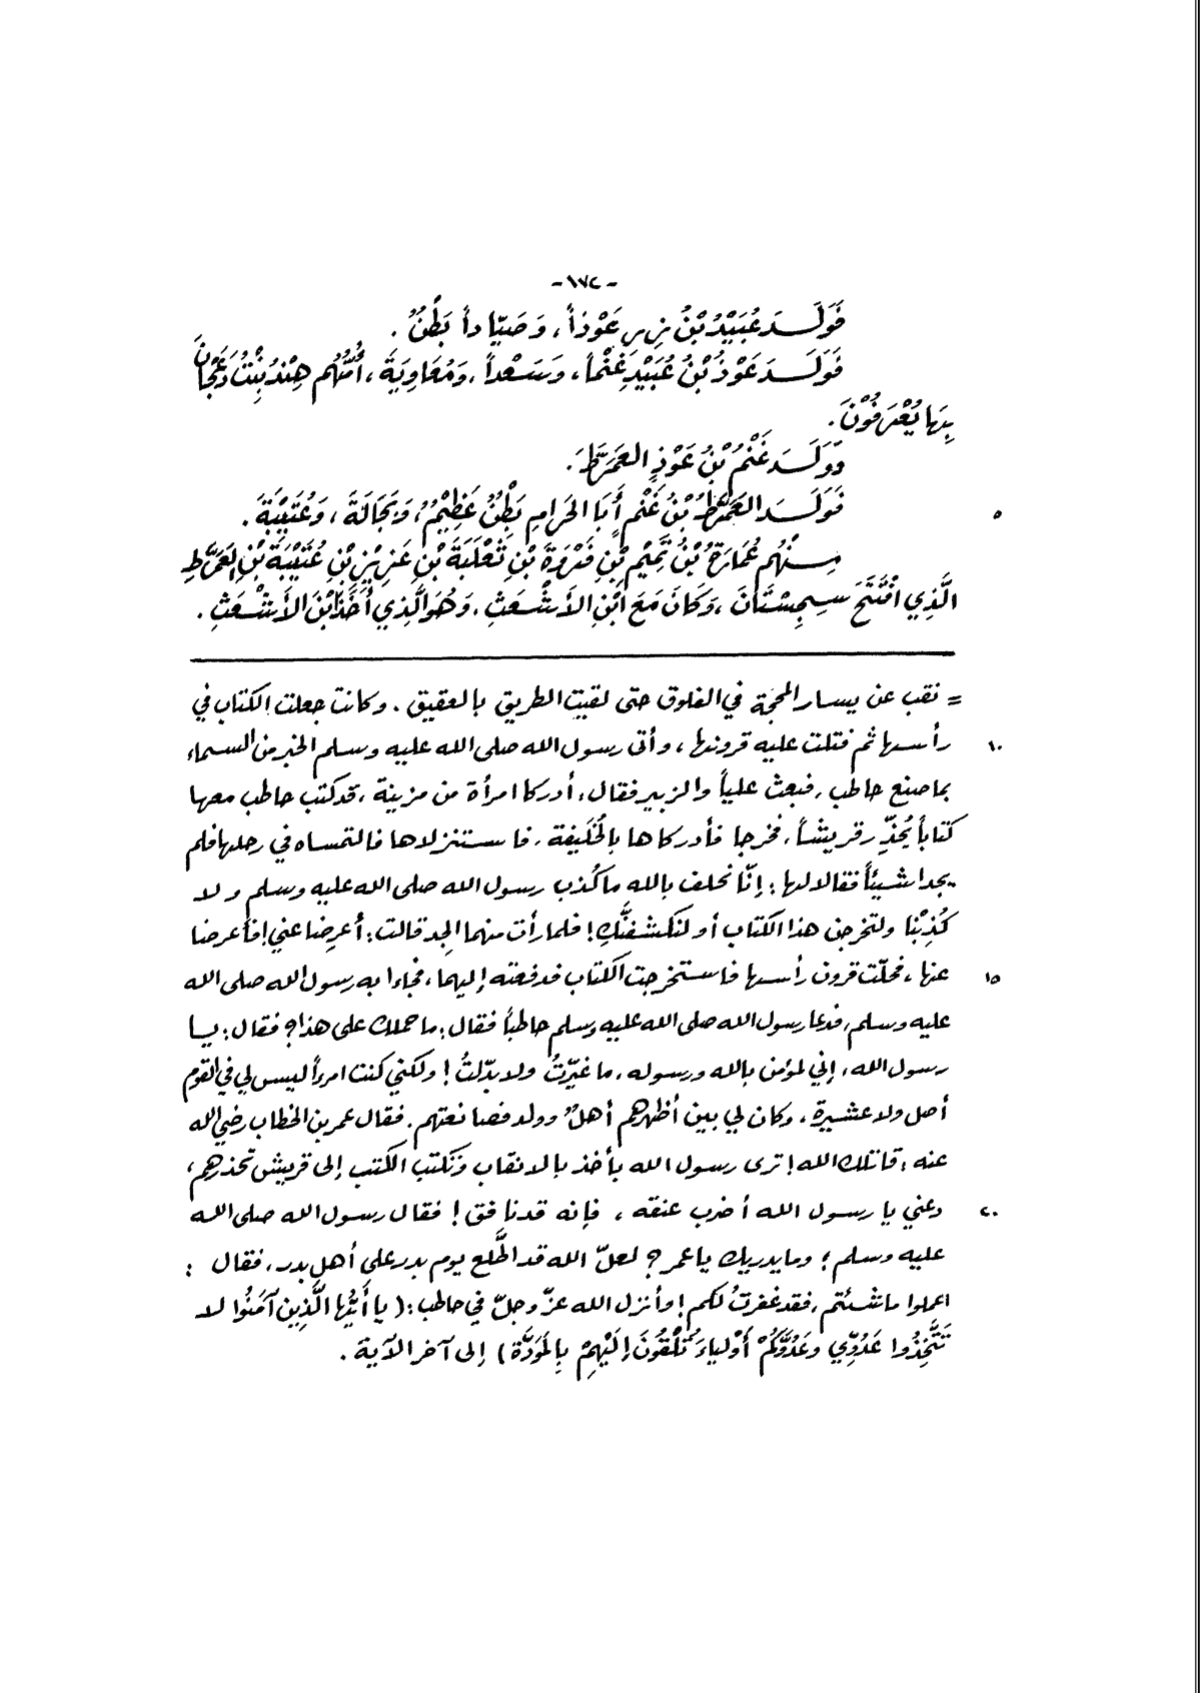 - ١٧٢ -
فَوَلَـدَ عُبَيْدُ بْنُ نِـرٍ عَوْذاً، وَصَيّاداً بَطْنٌ.
فَوَلَـدَ عَوْذُ بْنُ عُبَيْدٍ غَنْماً، وَسَعْداً، وَمُعَاوِيَةَ، أُمُّهُم هِنْدُ بِنْتُ دَعْجَانَ
بِهَا يُعْرَفُوْنَ.
فَوَلَـدَ غَنْمُ بْنُ عَوْذٍ العَمَرَّطَ.
فَوَلَـدَ العَمَرَّطُ بْنُ غَنْمٍ أَبَا الحَرَامِ بَطْنٌ عَظِيْمٌ، وَبَجَالَةَ، وَعُتَيْبَةَ. ٥
مِـنْهُم عُمَارَةُ بْنُ تَمِيْمِ بْنِ فَرْوَةَ بْنِ ثَعْلَبَةَ بْنِ عَزِيْزِ بْنِ عُتَيْبَةَ بْنِ العَمَرَّطِ
الَّذِي افْتَتَحَ سِـجِسْتَانَ، وَكَانَ مَعَ ابْنِ الأَشْعَثِ، وَهُوَ الَّذِي أَخَذَ ابْنَ الأَشْـعَثِ.
= نقب عن يسار المحجة في الفلوق حتى لقيت الطريق بالعقيق. وكانت جعلت الكتاب في
رأسها ثم فتلت عليه قرونها، وأتى رسول الله صلى الله عليه وسلم الخبر من السماء ١٠
بما صنع حاطب، فبعث علياً والزبير فقال: أدركا امرأة من مزينة، قد كتب حاطب معها
كتاباً يُحَذِّر قريشاً، فخرجا فأدركاها بالخُلَيفة، فاستنزلاها فالتمساه في رحلها فلم
يجدا شيئاً فقالا لها: إنّا نحلف بالله ما كُذب رسول الله صلى الله عليه وسلم ولا
كُذِبْنا ولتخرجن هذا الكتاب أو لنكشفنَّكِ! فلما رأت منهما الجِد قالت: أعرِضا عني! فأعرضا
عنها، فحلّت قرون رأسها فاستخرجت الكتاب فدفعته إليهما، فجاءا به رسول الله صلى الله ١٥
عليه وسلم، فدعا رسول الله صلى الله عليه وسلم حاطباً فقال: ما حملك على هذا؟ فقال: يا
رسول الله، إني لمؤمن بالله ورسوله، ما غيّرتُ ولا بدّلتُ! ولكني كنت امرءاً ليس لي في القوم
أصل ولا عشيرة، وكان لي بين أظهرهم أهلٌ وولد فصانعتهم. فقال عمر بن الخطاب رضي الله
عنه: قاتلك الله! ترى رسول الله يأخذ بالانقاب وتكتب الكتب إلى قريش تحذرهم،
دعني يا رسول الله أضرب عنقه، فإنه قد نافق! فقال رسول الله صلى الله ٢٠
عليه وسلم؛ وما يدريك يا عمر؟ لعلّ الله قد اطَّلع يوم بدر على أهل بدر، فقال:
اعملوا ما شئتم، فقد غفرتُ لكم! وأنزل الله عزّ وجلّ في حاطب: (يا أَيُّها الَّذِينَ آمَنُوا لا
تَتَّخِذُوا عَدُوِّي وَعَدُوَّكُمْ أَوْلِياءَ تُلْقُونَ إِلَيْهِمْ بِالمَوَدَّةِ) إلى آخر الآية.